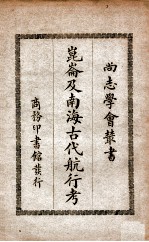 尚志學會叢書
崑崙及南海古代航行考
商務印書館發行